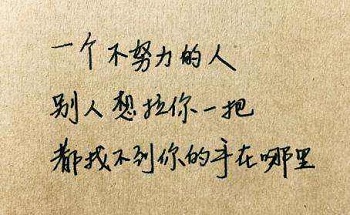 一个不努力的人
别人想拉你一把
都找不到你的手在哪里